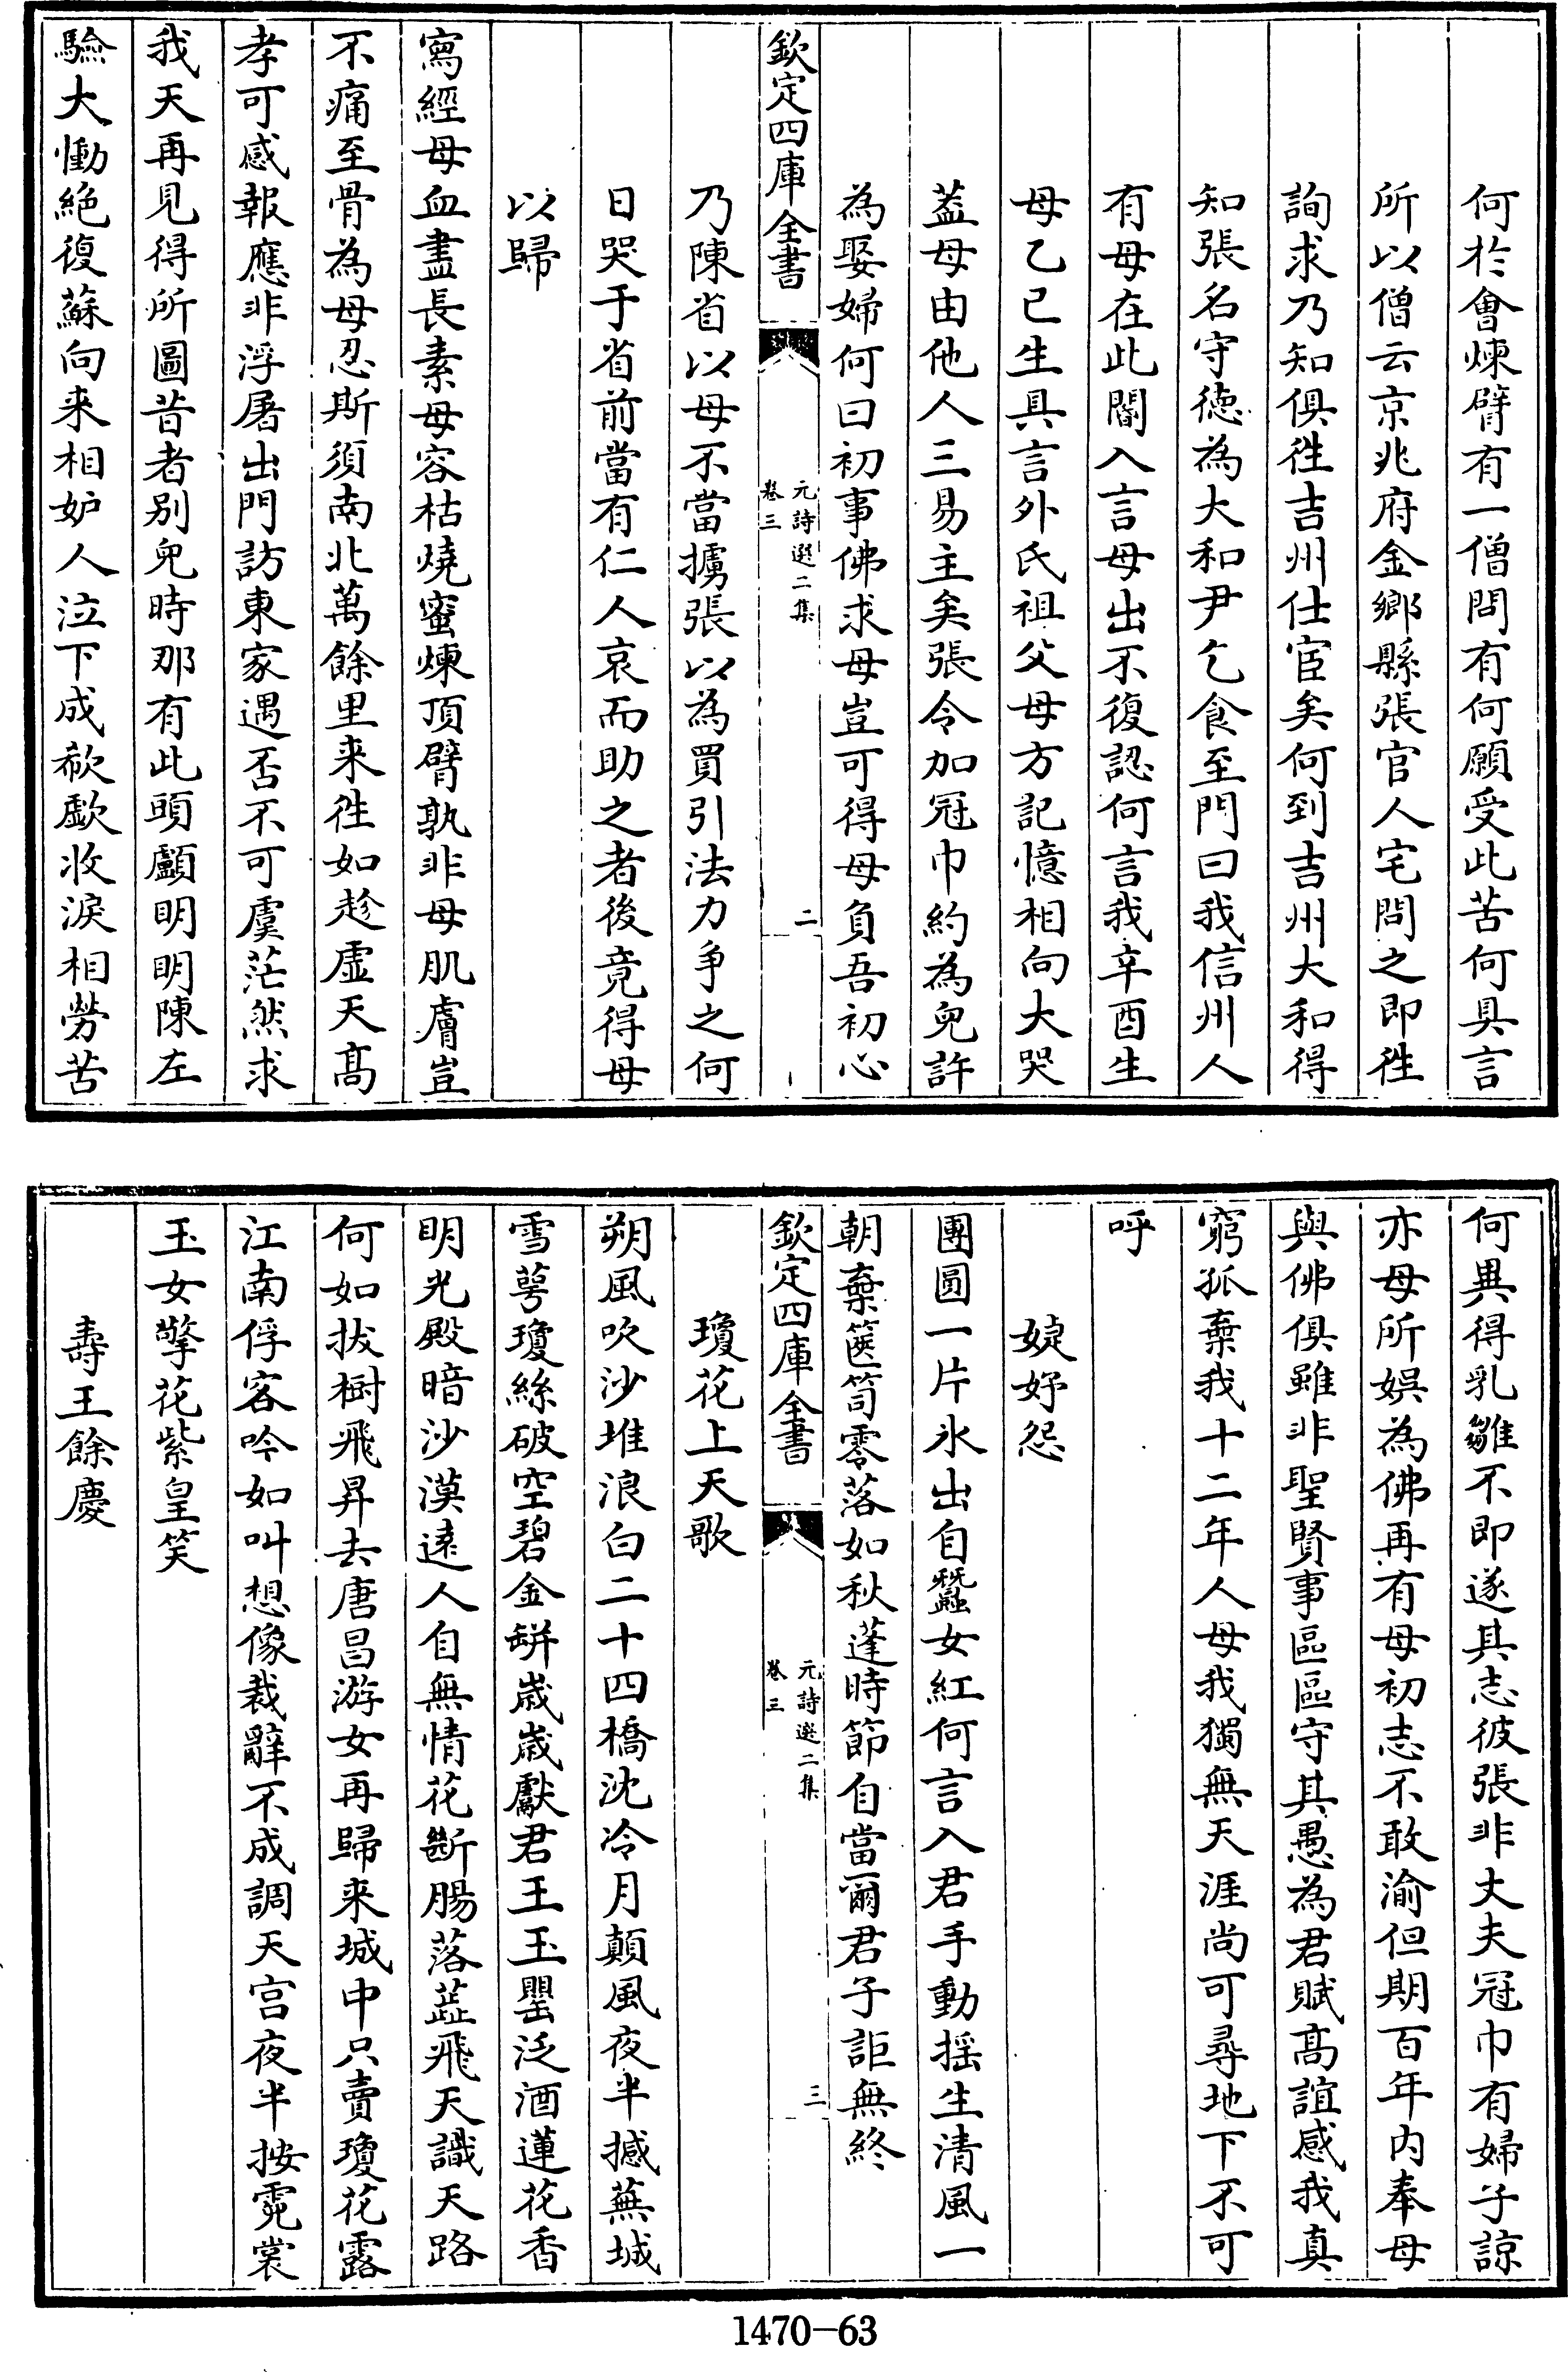 何於會煉臂有一僧問有何願受此苦何具言
所以僧云京兆府金鄉縣張官人宅問之即徃
詢求乃知俱徃吉州仕宦矣何到吉州大和得
知張名守徳為大和尹乞食至門曰我信州人
有母在此閽入言母出不復認何言我辛酉生
母乙巳生具言外氏祖父母方記憶相向大哭
葢母由他人三易主矣張令加冠巾約為兒許
為娶婦何曰初事佛求母豈可得母負吾初心
欽定四庫全書
元詩選二集
卷三
二
乃陳省以母不當擄張以為買引法力爭之何
日哭于省前當有仁人哀而助之者後竟得母
以歸
寫經母血盡長素母容枯燒蜜煉頂臂孰非母肌膚豈
不痛至骨為母忍斯須南北萬餘里来徃如趁虛天髙
孝可感報應非浮屠出門訪東家遇否不可虞茫然求
我天再見得所圖昔者别兒時那有此頭顱明明陳左
驗大慟絶復蘇向来相妒人泣下成欷歔收淚相勞苦
何異得乳雛不即遂其志彼張非丈夫冠巾有婦子諒
亦母所娯為佛再有母初志不敢渝但期百年内奉母
與佛俱雖非聖賢事區區守其愚為君賦髙誼感我真
窮孤棄我十二年人母我獨無天涯尚可尋地下不可
呼
婕妤怨
團圓一片氷出自蠶女紅何言入君手動揺生清風一
朝棄篋笥零落如秋蓬時節自當爾君子詎無終
欽定四庫全書
元詩選二集
卷三
三
瓊花上天歌
朔風吹沙堆浪白二十四橋沈冷月顛風夜半撼蕪城
雪萼瓊絲破空碧金缾嵗嵗獻君王玉罌泛酒蓮花香
明光殿暗沙漠逺人自無情花斷腸落蘂飛天識天路
何如拔樹飛昇去唐昌游女再歸来城中只賣瓊花露
江南俘客吟如叫想像裁辭不成調天宫夜半按霓裳
玉女擎花紫皇笑
壽王餘慶
1470-63